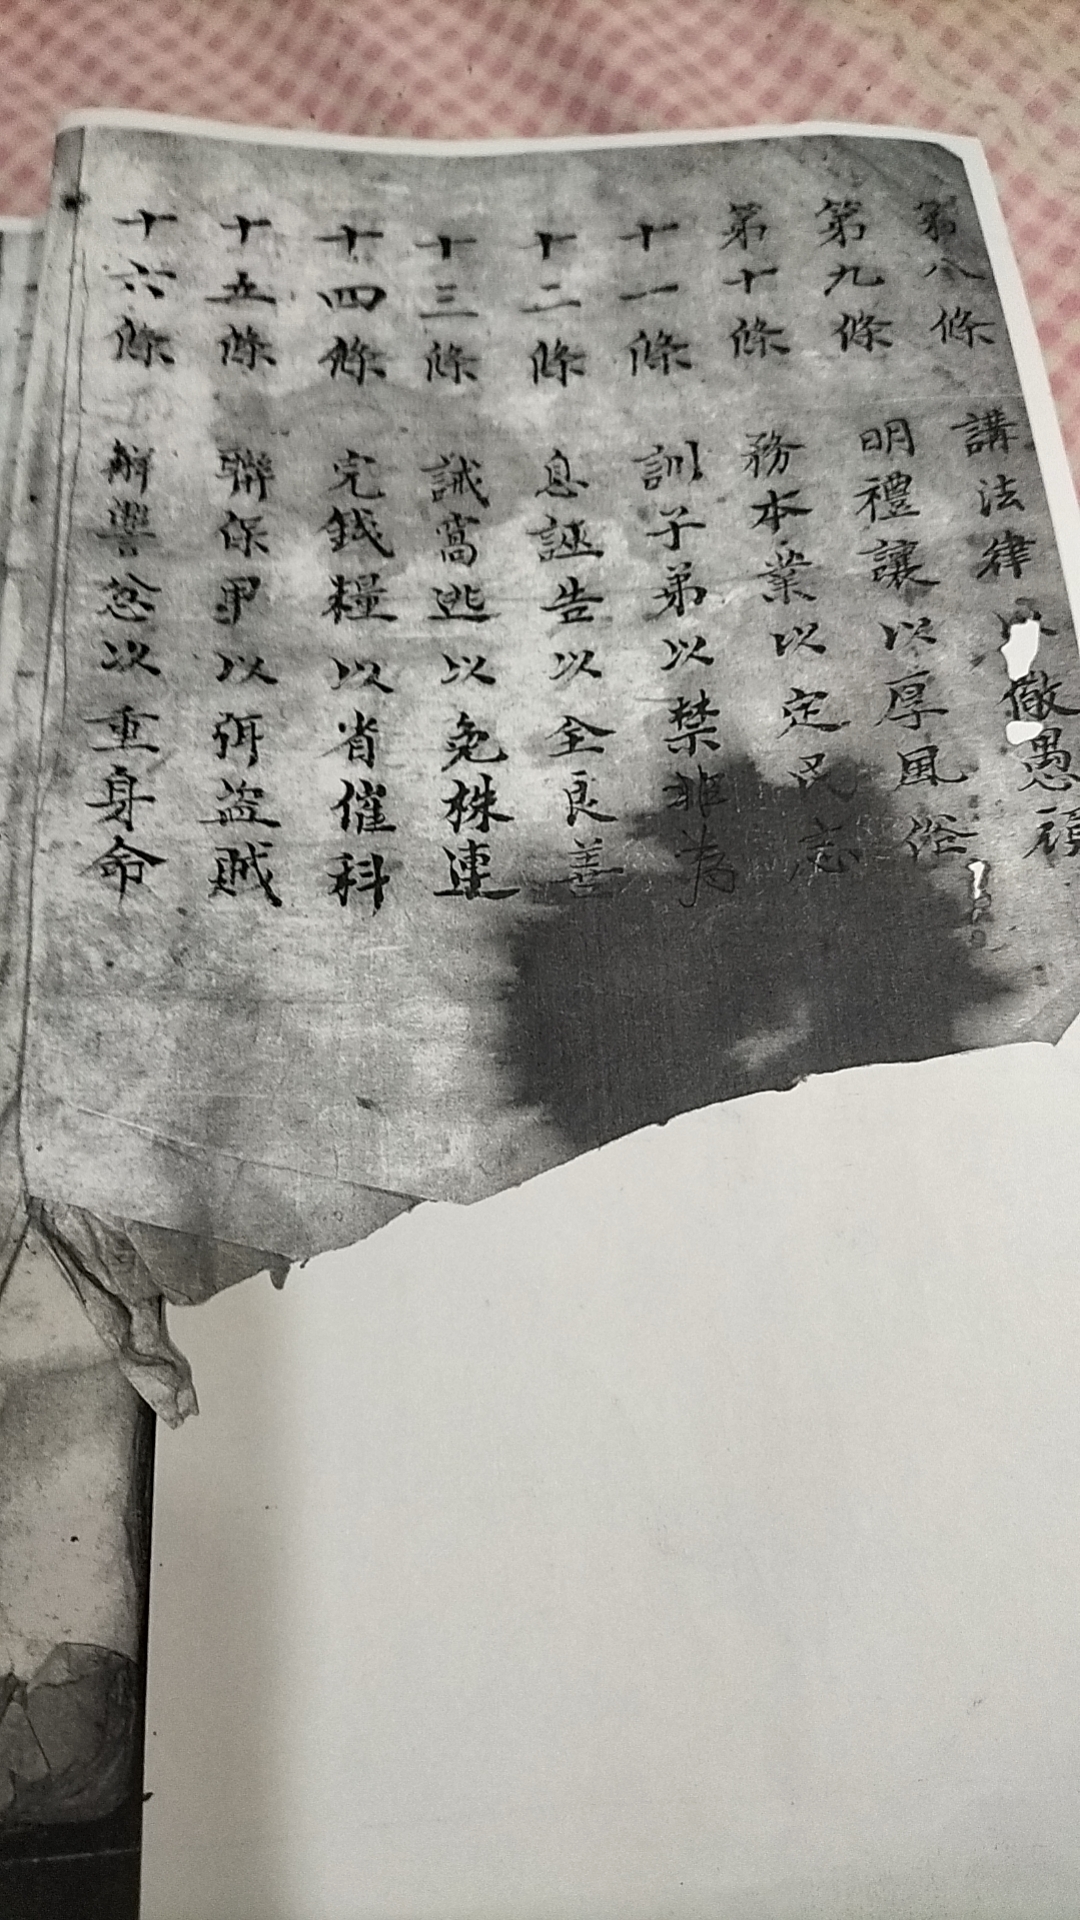 第八條 講法律以儆愚頑
第九條 明禮讓以厚風俗
第十條 務本業以定民志
十一條 訓子弟以禁非為
十二條 息誣告以全良善
十三條 誡窩逃以免株連
十四條 完錢糧以省催科
十五條 聯保甲以弭盜賊
十六條 解讐忿以重身命